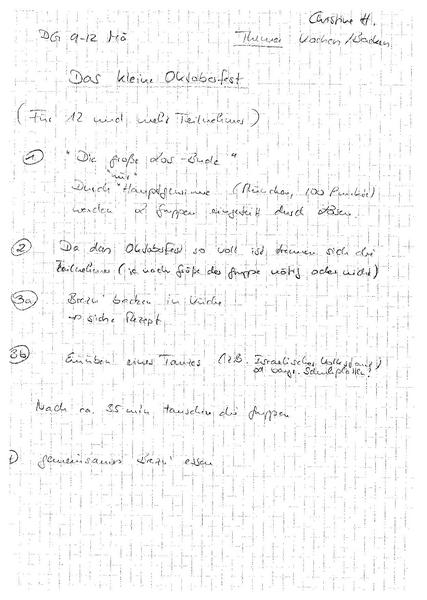 Christine H.
DG 9-12 Mä Thema: Kochen/Backen
Das kleine Oktoberfest
(Für 12 und mehr Teilnehmer)
1 "Die große Los-Bude"
"nur"
Durch "Hauptgewinne (München, 100 Punkte)
werden 2 Gruppen eingeteilt durch Losen.
2 Da das Oktoberfest so voll ist trennen sich die
Teilnehmer (je nach Größe der Gruppe nötig oder nicht)
3a Brezn' backen in Küche
→ siehe Rezept
3b Einüben eines Tanzes (z.B. Israelischer Volkstanz)
od. bayr. Schuhplattler!
Nach ca. 35 min tauschen die Gruppen
gemeinsames Brezn' essen